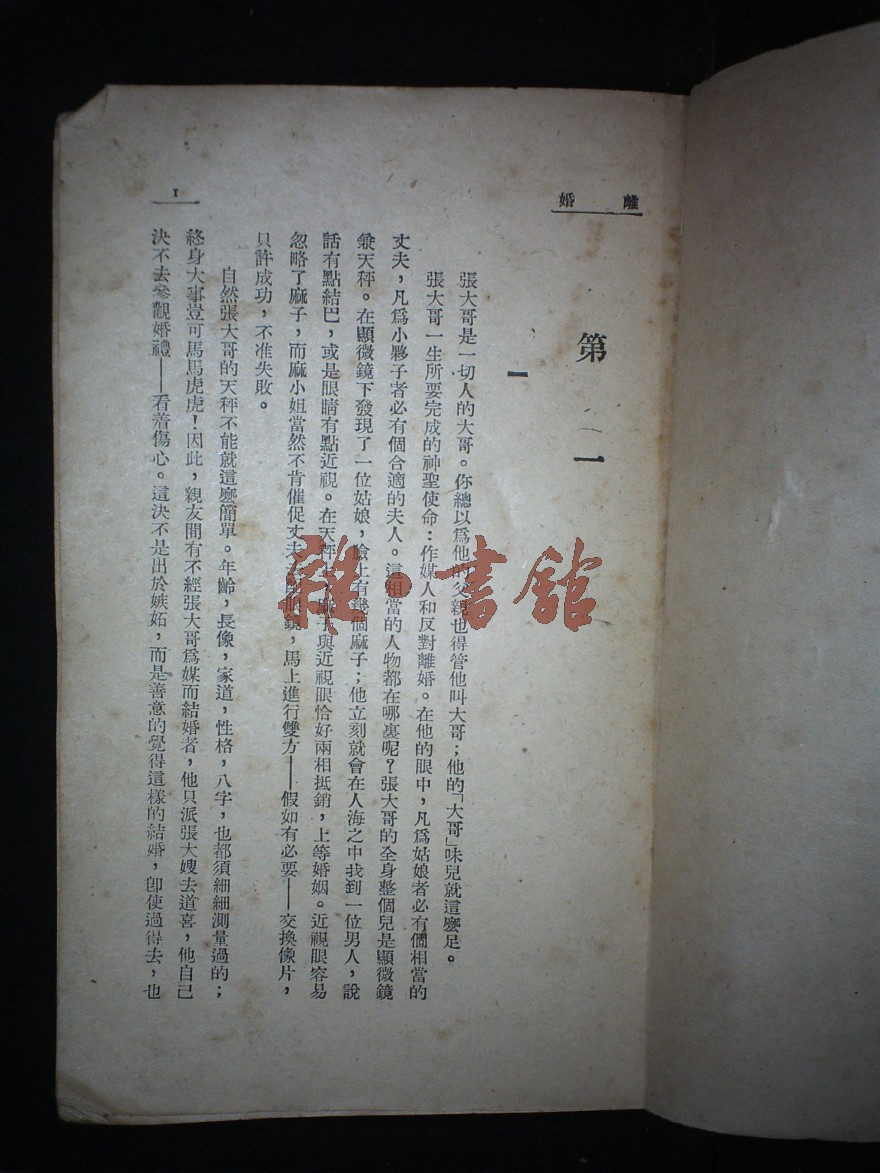 離婚
第一
一
張大哥是一切人的大哥。你總以爲他的父親也得管他叫大哥；他的「大哥」味兒就這麽足。
張大哥一生所要完成的神聖使命：作媒人和反對離婚。在他的眼中，凡爲姑娘者必有個相當的
丈夫，凡爲小夥子者必有個合適的夫人。這相當的人物都在哪裏呢？張大哥的全身整個兒是顯微鏡
兼天秤。在顯微鏡下發現了一位姑娘，臉上有幾個麻子；他立刻就會在人海之中找到一位男人，說
話有點結巴，或是眼睛有點近視。在天秤上，麻子與近視眼恰好兩相抵銷，上等婚姻。近視眼容易
忽略了麻子，而麻小姐當然不肯催促丈夫去配眼鏡，馬上進行雙方——假如有必要——交換像片，
只許成功，不准失敗。
自然張大哥的天秤不能就這麽簡單。年齡，長像，家道，性格，八字，也都須細細測量過的；
終身大事豈可馬馬虎虎！因此，親友間有不經張大哥爲媒而結婚者，他只派張大嫂去道喜，他自己
決不去參觀婚禮——看着傷心。這決不是出於嫉妬，而是善意的覺得這樣的結婚，卽使過得去，也
1
雜·書館